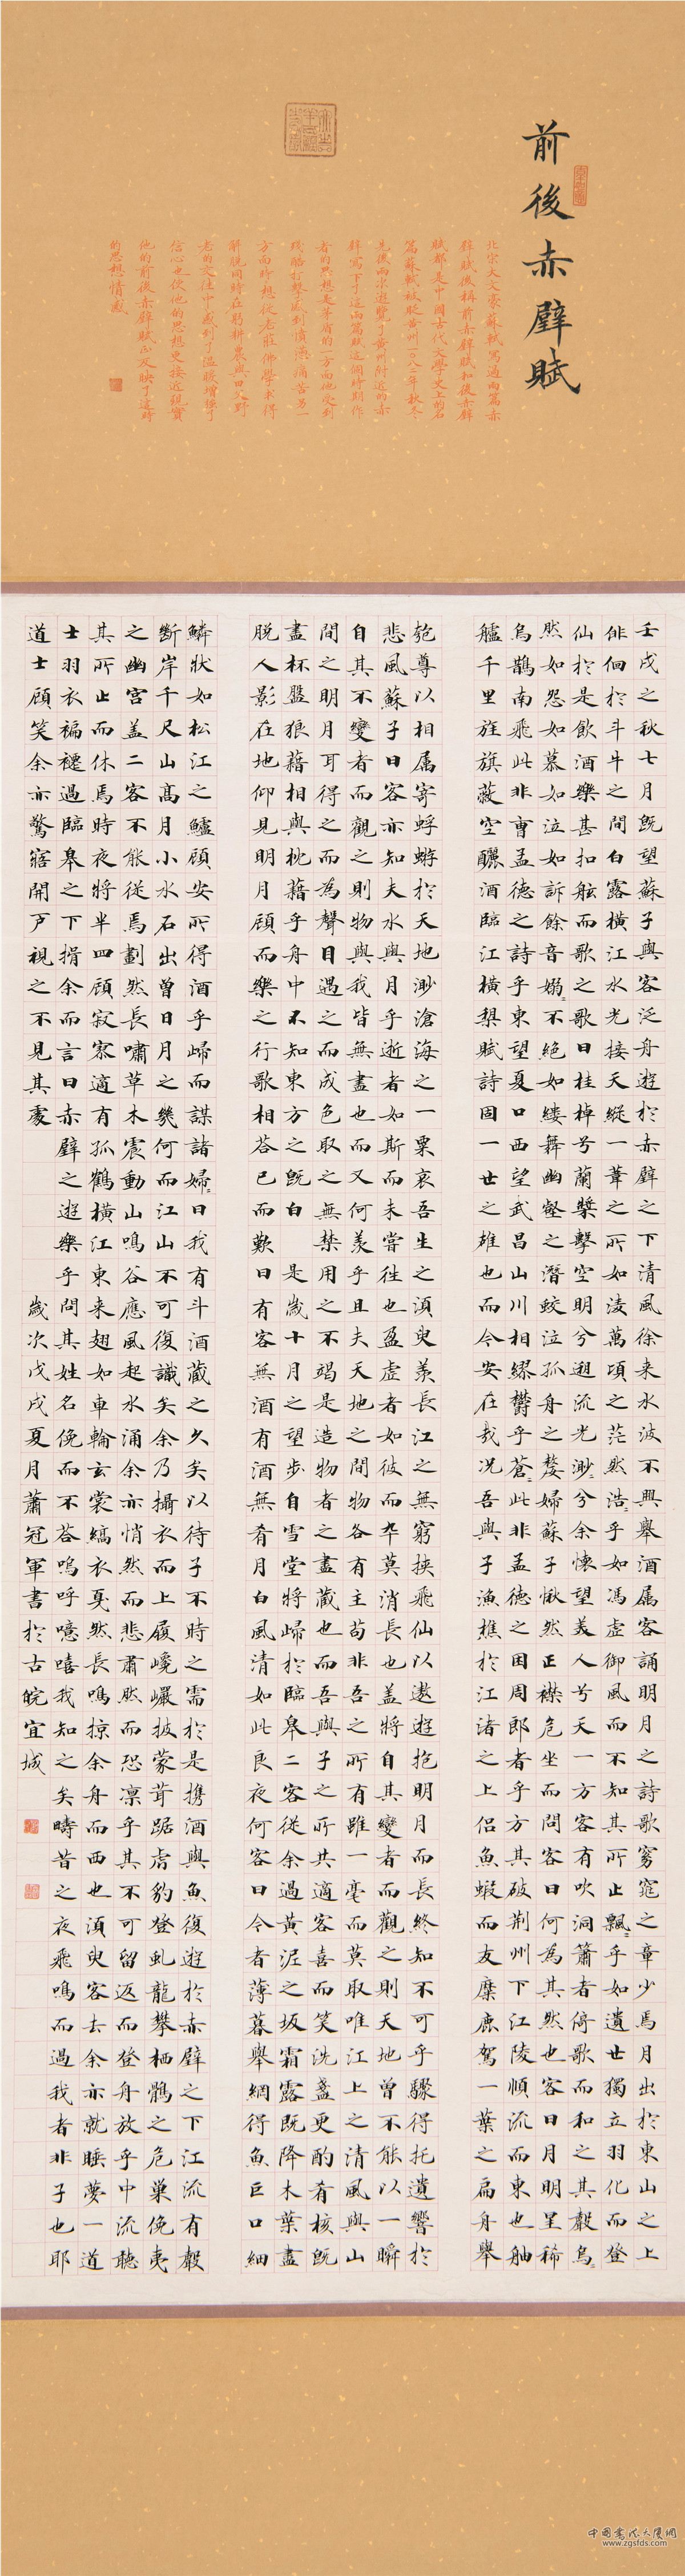 前後赤壁賦
北宋大文豪蘇軾寫過兩篇赤
壁賦後稱前赤壁賦和後赤壁
賦都是中國古代文學史上的名
篇蘇軾被貶黃州一〇八二年秋冬
先後兩次遊覽了黃州附近的赤
壁寫下了這兩篇賦這個時期作
者的思想是矛盾的一方面他受到
殘酷打擊感到憤懣痛苦另一
方面時想從老莊佛學求得
解脫同時在躬耕農與田父野
老的交往中感到了溫暖增强了
信心也使他的思想更接近現實
他的前後赤壁賦正反映了這時
的思想情感
壬戌之秋七月既望蘇子與客泛舟遊於赤壁之下清風徐来水波不興舉酒属客誦明月之詩歌窈窕之章少焉月出於東山之上
徘徊於斗牛之間白露橫江水光接天縱一葦之所如淩萬頃之茫然浩〻乎如馮虛御風而不知其所止飄〻乎如遺世獨立羽化而登
仙於是飲酒樂甚扣舷而歌之歌曰桂棹兮蘭槳擊空明兮遡流光渺〻兮余懷望美人兮天一方客有吹洞簫者倚歌而和之其聲烏〻
然如怨如慕如泣如訴餘音嫋〻不絕如縷舞幽壑之潛蛟泣孤舟之嫠婦蘇子愀然正襟危坐而問客曰何為其然也客曰月明星稀
烏鵲南飛此非曹孟德之詩乎東望夏口西望武昌山川相繆鬱乎蒼〻此非孟德之困周郎者乎方其破荊州下江陵順流而東也舳
艫千里旌旗蔽空釃酒臨江橫槊賦詩固一世之雄也而今安在哉況吾與子漁樵於江渚之上侶魚蝦而友麋鹿駕一葉之扁舟舉
匏尊以相属寄蜉蝣於天地渺滄海之一粟哀吾生之須臾羨長江之無窮挾飛仙以遨遊抱明月而長終知不可乎驟得托遺響於
悲風蘇子曰客亦知夫水與月乎逝者如斯而未嘗往也盈虛者如彼而卒莫消長也蓋將自其變者而觀之則天地曾不能以一瞬
自其不變者而觀之則物與我皆無盡也而又何羨乎且夫天地之間物各有主苟非吾之所有雖一毫而莫取唯江上之清風與山
間之明月耳得之而為聲目遇之而成色取之無禁用之不竭是造物者之盡藏也而吾與子之所共適客喜而笑洗盞更酌肴核既
盡杯盤狼藉相與枕藉乎舟中不知東方之既白 是歲十月之望步自雪堂將歸於臨皋二客從余過黃泥之坂霜露既降木葉盡
脱人影在地仰見明月顧而樂之行歌相答已而歎曰有客無酒有酒無肴月白風清如此良夜何客曰今者薄暮舉網得魚巨口細
鱗狀如松江之鱸顧安所得酒乎歸而謀諸婦〻曰我有斗酒藏之久矣以待子不時之需於是攜酒與魚復遊於赤壁之下江流有聲
斷岸千尺山高月小水石出曾日月之幾何而江山不可復識矣余乃攝衣而上履巉巖披蒙茸踞虎豹登虬龍攀栖鶻之危巢俛夷
之幽宮盖二客不能從焉劃然長嘯草木震動山鳴谷應風起水涌余亦悄然而悲肅然而恐凛乎其不可留返而登舟放乎中流聽
其所止而休焉時夜將半四顧寂寥適有孤鶴橫江東来翅如車輪玄裳縞衣戛然長鳴掠余舟而西也須臾客去余亦就睡夢一道
士羽衣褊褼過臨皋之下揖余而言曰赤壁之遊樂乎問其姓名俛而不答嗚呼噫嘻我知之矣疇昔之夜飛鳴而過我者非子也耶
道士顧笑余亦驚寤開戶視之不見其處 歲次戊戌夏月蕭冠軍書於古皖宜城
中国书法大厦網
www.zgsfds.com